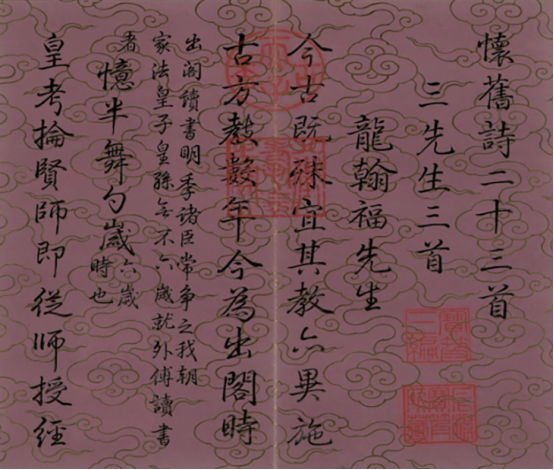 懷舊詩二十三首
三先生三首
龍翰福先生
今古既殊宜其教亦異施
古方教數年今為出閣時
出閣讀書明季諸臣常爭之我朝
家法皇子皇孫無不六歲就外傅讀書
者
憶半舞勺歲
六歲
時也
皇考掄賢師即從師授經